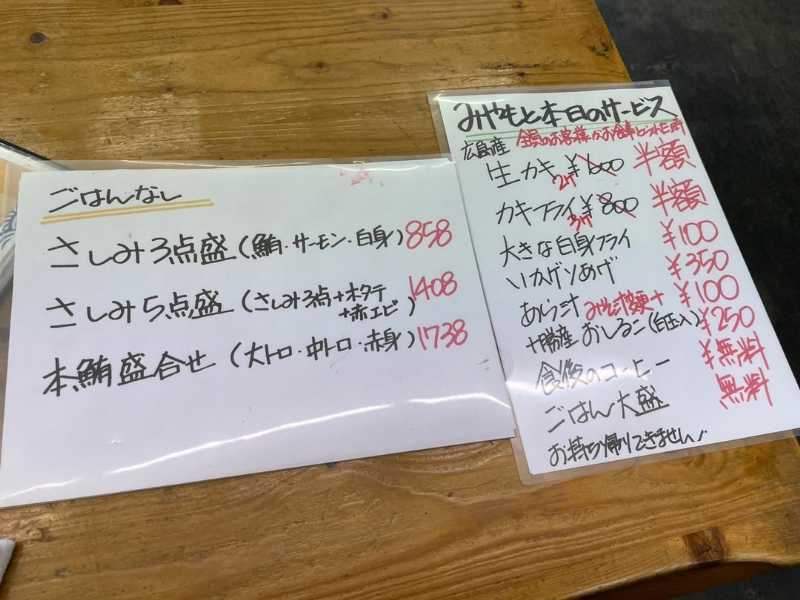 ごはんなし
さしみ3点盛(鮪・サーモン・白身) 858
さしみ5点盛(さしみ3点+ホタテ+赤エビ) 1408
本鮪盛合せ(大トロ・中トロ・赤身) 1738
みやもと本日のサービス
全員のお客様がお食事
広島産
生カキ 2ケ ¥600 半額
カキフライ 3ケ ¥800 半額
大きな白身フライ ¥100
いかげソあげ ¥350
あら汁 ¥100
十勝産おしるこ(白玉入) ¥250
食後のコーヒー ¥無料
ごはん大盛 無料
お持ち帰りできません